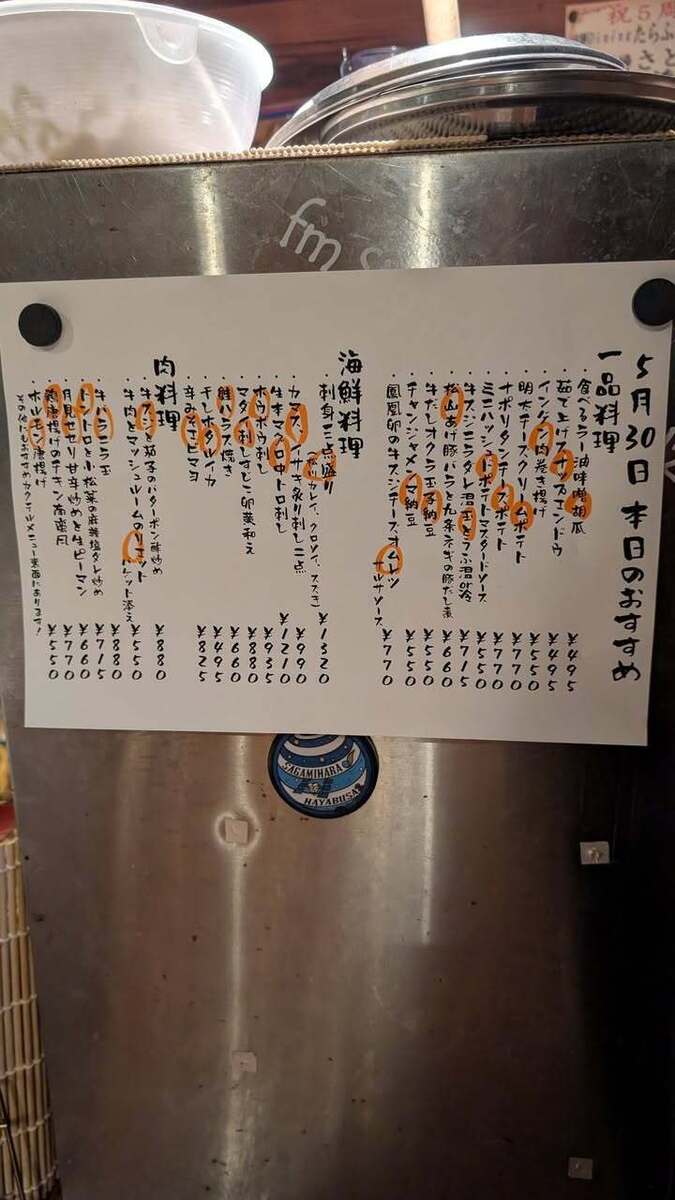 祝5周
たらふ
さと
fm
5月30日 本日のおすすめ
一品料理
・食べるラー油味噌胡瓜 ¥495
・茹で上げスナップエンドウ ¥495
・インゲン肉巻き揚げ ¥550
・明太チーズクリームポテト ¥770
・ナポリタンチーズポテト ¥770
・ミニハッシュドポテトマスタードソース ¥550
・牛スジニラダレ温玉とうふ温or冷 ¥715
・松山あげ豚バラと九条ネギの豚だし煮 ¥660
・牛だしオクラ玉子納豆 ¥550
・チャンジャメンマ納豆 ¥550
・鳳凰卵の牛スジチーズオムレツ サルサソース ¥770
海鮮料理
・刺身三点盛り ¥1320
クロソイ、スズキ)
・カマス、イサキ炙り刺し二点 ¥990
・生本マグロ中トロ刺し ¥1210
・ホウボウ刺し ¥935
・マダイ刺しすじこ卵黄和え ¥880
・鮭ハラス焼き ¥660
・干しホタルイカ ¥495
・辛みそエビマヨ ¥825
肉料理
・牛スジと茄子のバターポン酢炒め ¥880
・牛肉とマッシュルームのリエット バケット添え ¥550
・牛バラニラ玉 ¥880
・トントロと小松菜の麻辣塩ダレ炒め ¥715
・月見セセリ甘辛炒めと生ピーマン ¥660
・鶏唐揚げのチキン南蛮風 ¥770
・ホルモン唐揚げ ¥550
その他にもおすすめカクテルメニュー裏面にあります!
SAGAMIHARA
HAYABUSA